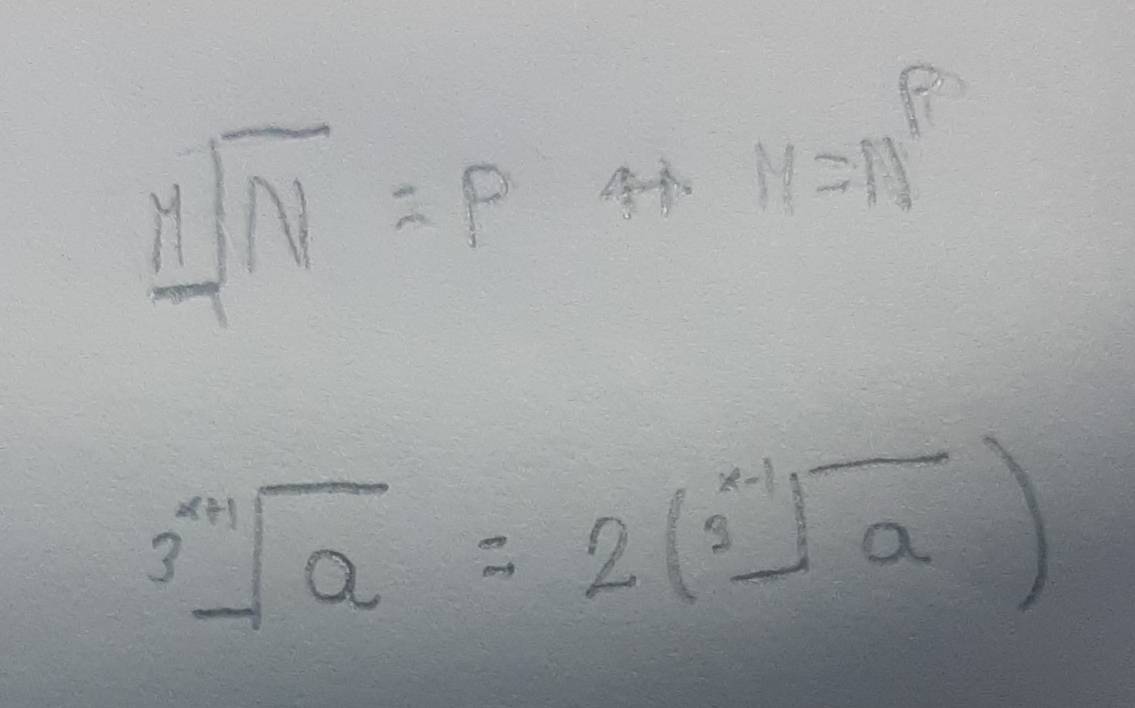 M⅃‾N = P ↔ M = N^P
3^(x+1)⅃‾a = 2(3^(x-1)⅃‾a)